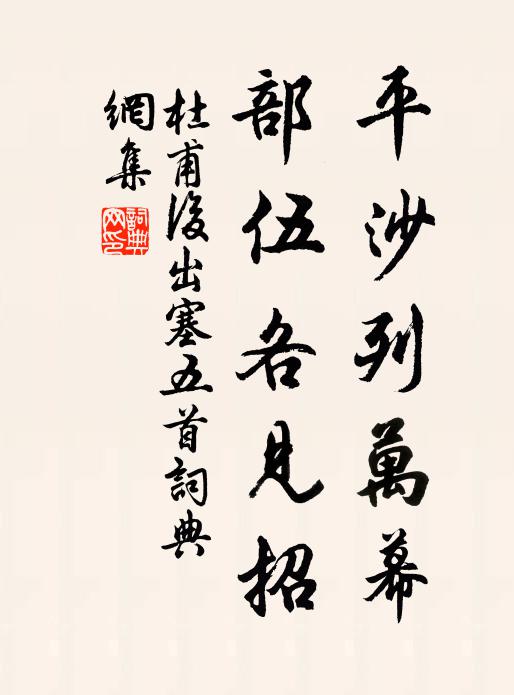 平沙列萬幕
部伍各見招
杜甫後出塞五首詞典
網集
詞典
网印